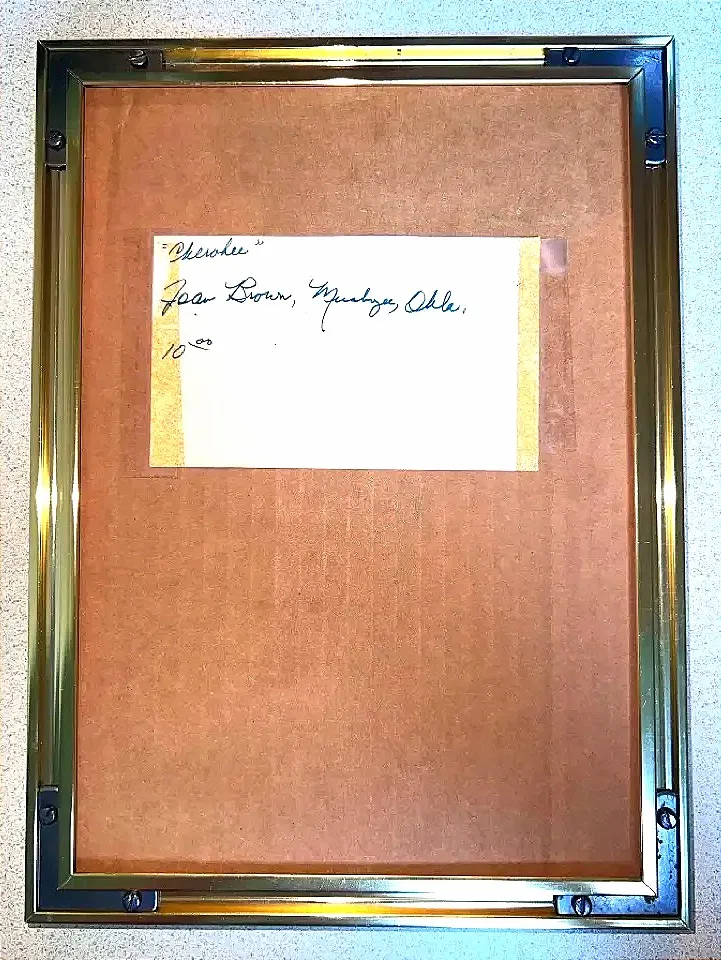 "Cherokee"
Joan Brown, Muskogee, Okla.
10.00